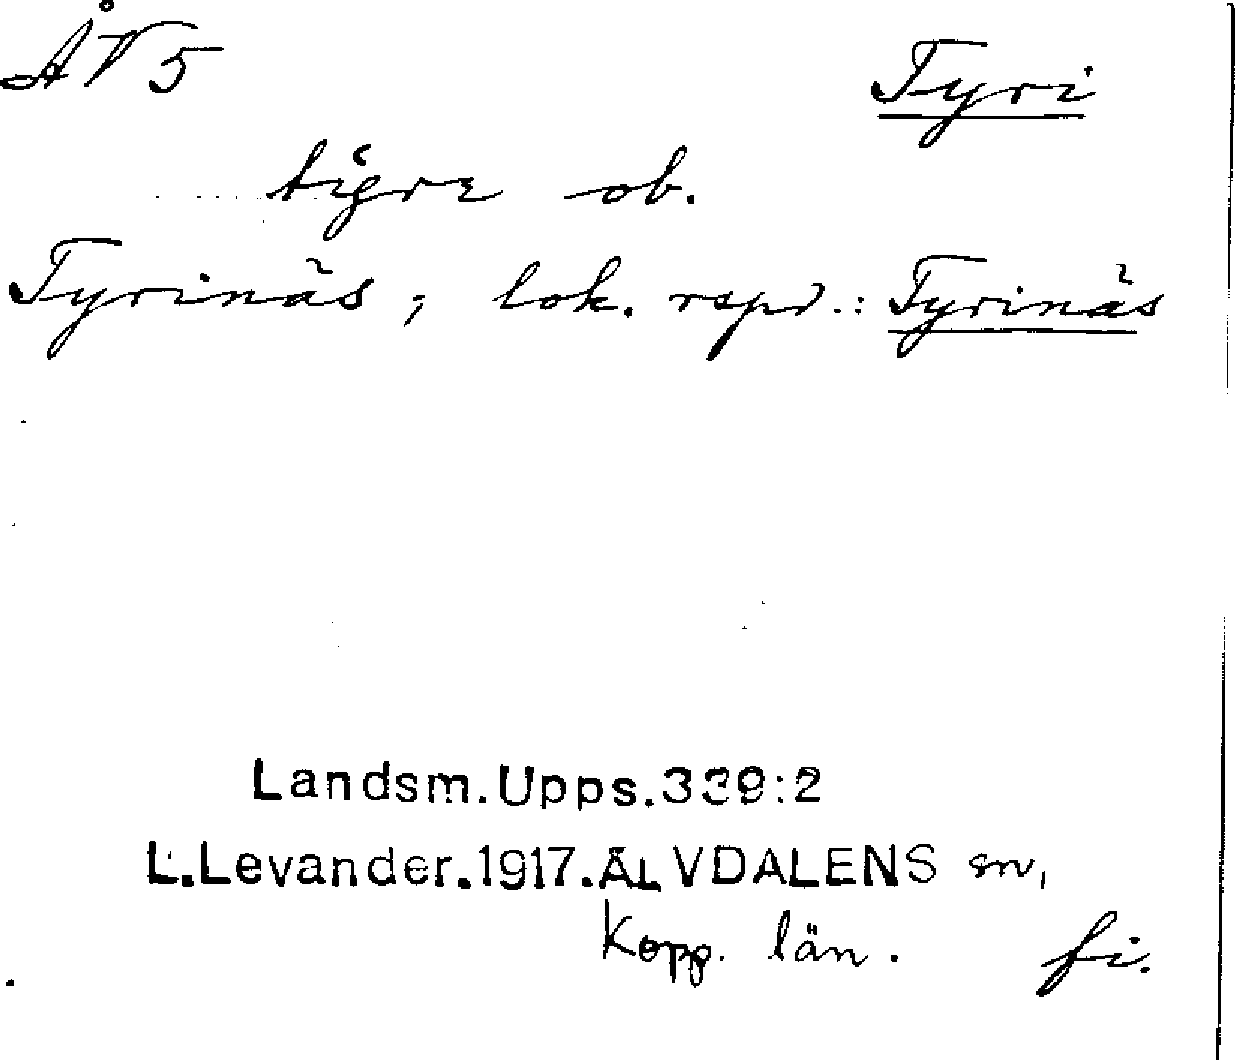 ÅV5
Tyri
tigre ob.
Tyrinäs, lok. repr.: Tyrinäs
Landsm.Upps.339:2
L.Levander.1917.ÄLVDALENS sn,
Kopp. län. fi.